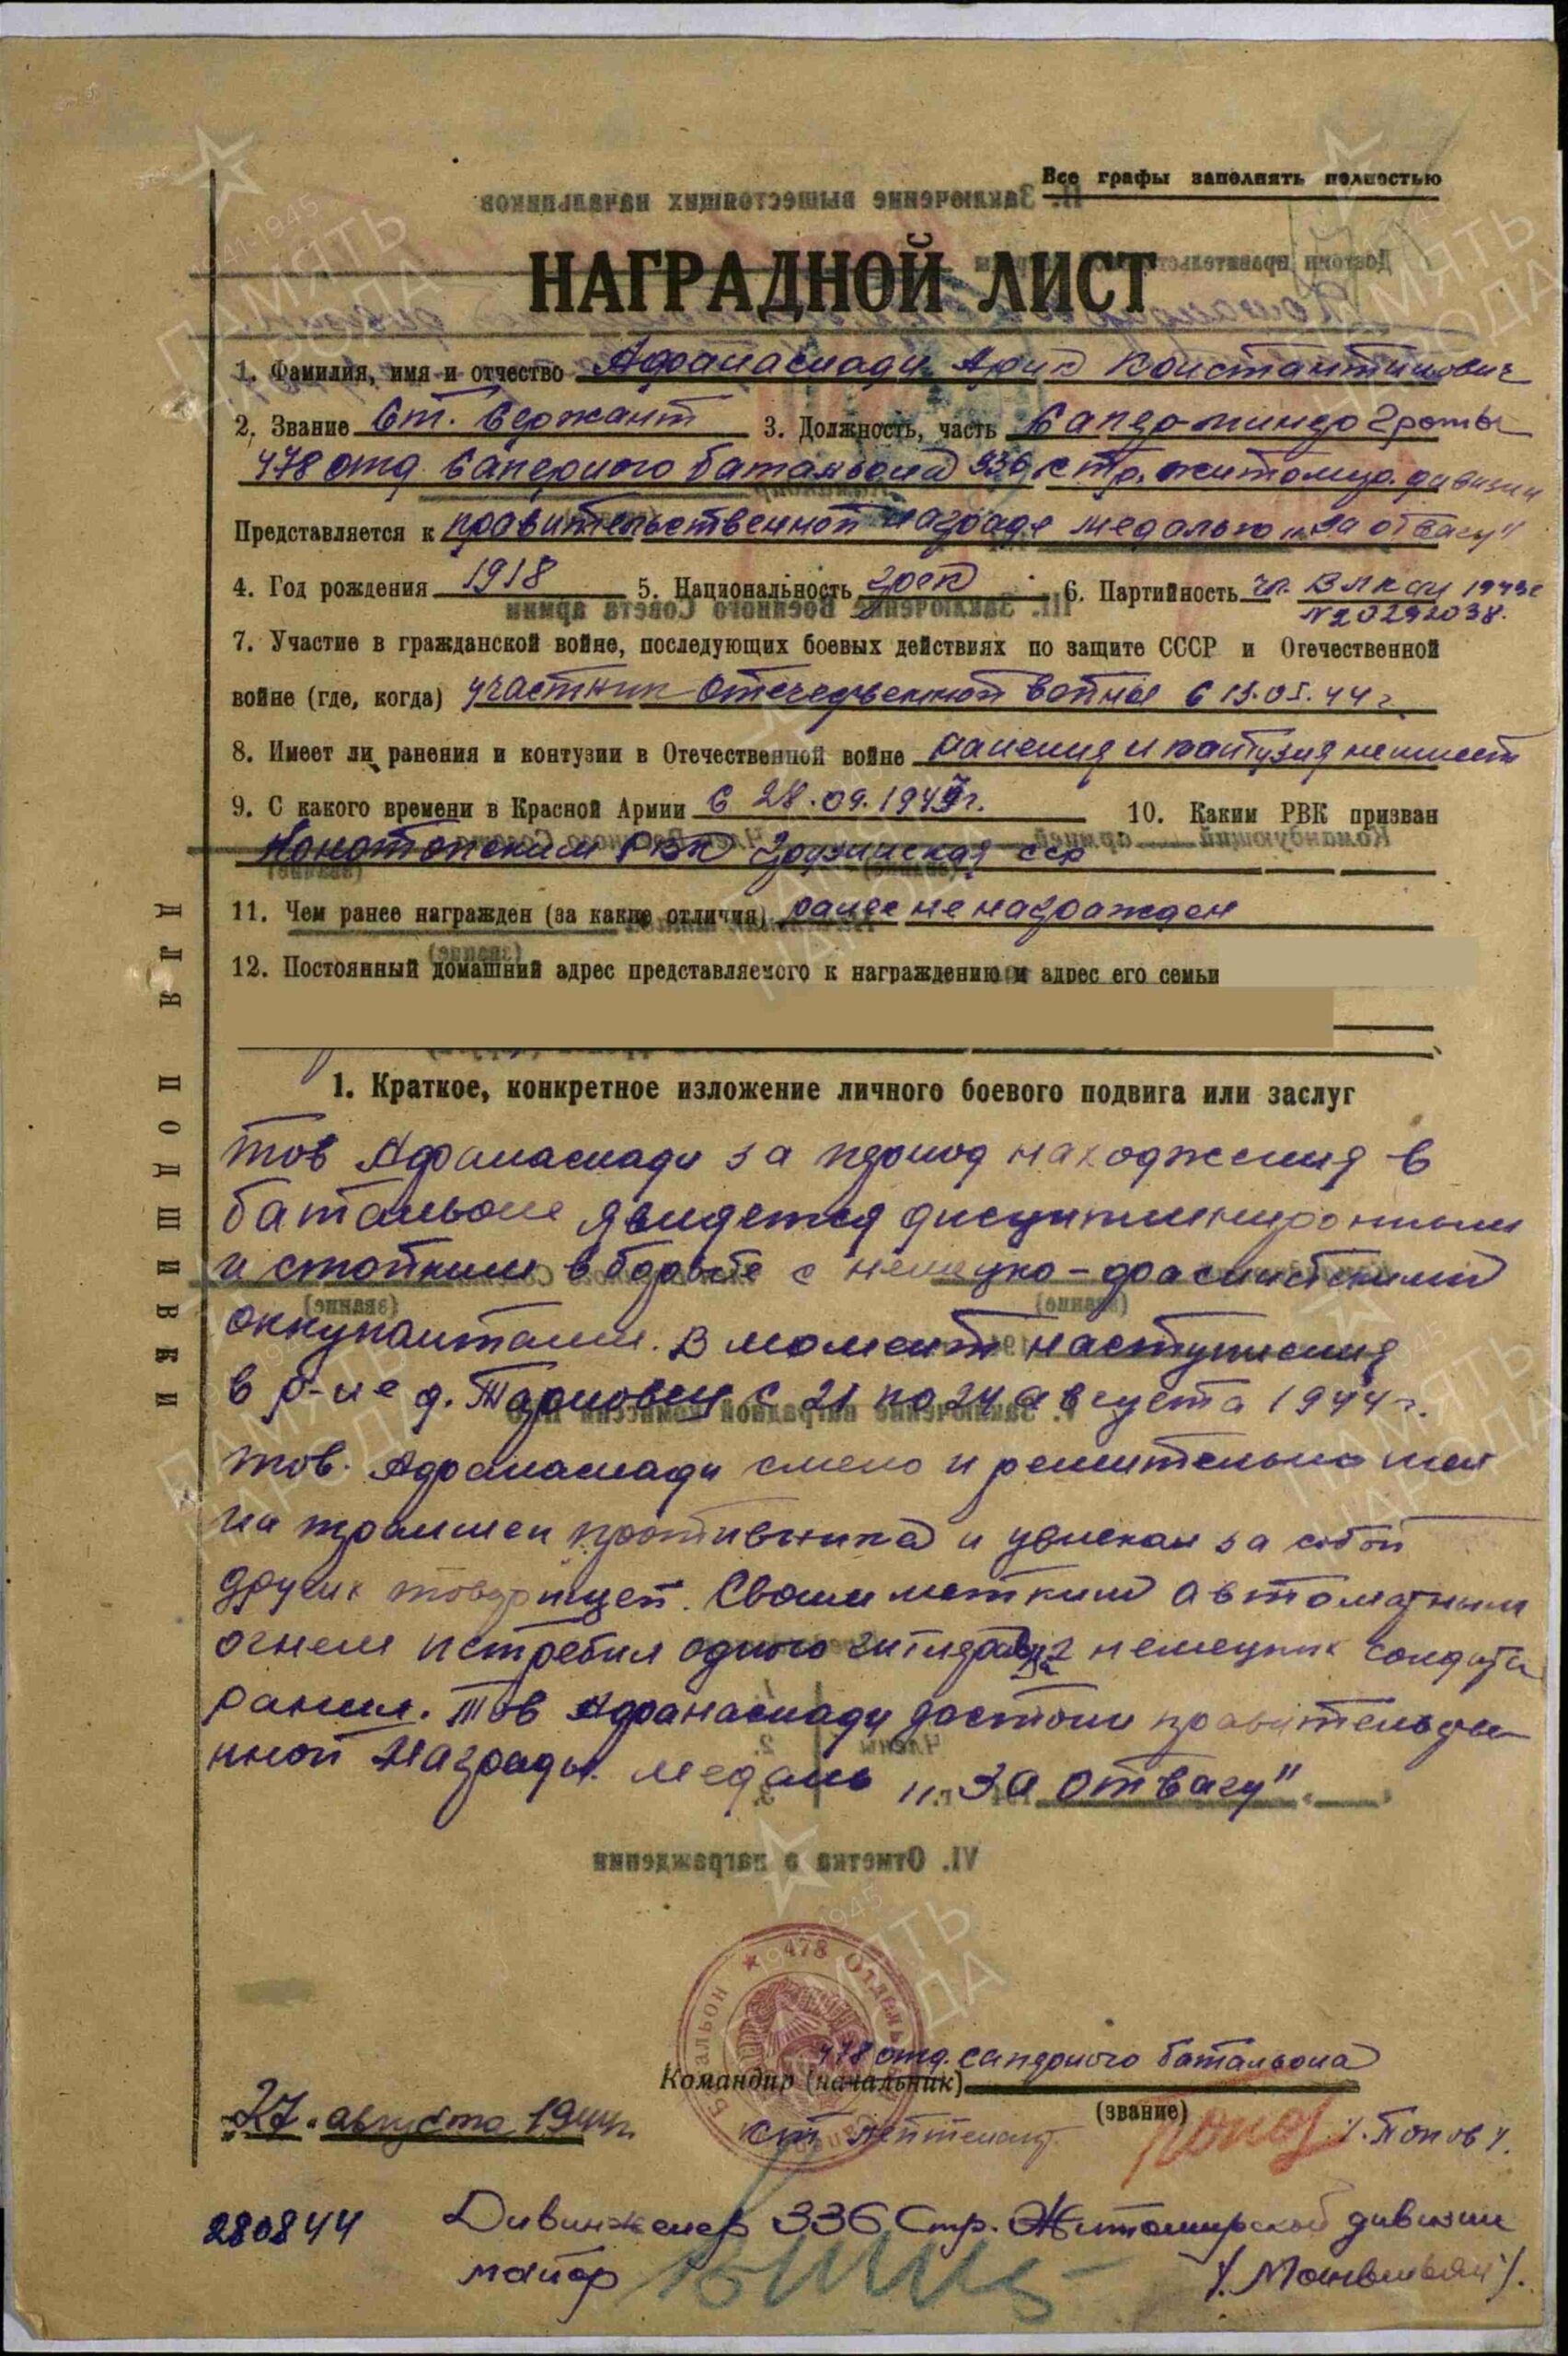 Все графы заполнять полностью
НАГРАДНОЙ ЛИСТ
1. Фамилия, имя и отчество Афанасиади Арик Константинович
2. Звание Ст. Сержант 3. Должность, часть Сапер-минер 2 роты
478 отд. Саперного батальона 336 стр. житомир. дивизии
Представляется к правительственной награде медалью "За отвагу"
4. Год рождения 1918 5. Национальность грек 6. Партийность чл. ВЛКСМ 1943г
№20292038.
7. Участие в гражданской войне, последующих боевых действиях по защите СССР и Отечественной
войне (где, когда) участник Отечественной войны с 15.05.44 г.
8. Имеет ли ранения и контузии в Отечественной войне ранения и контузия не имеет
9. С какого времени в Красной Армии С 28.09. 10. Каким РВК призван
РВК Грузинская сср
11. Чем ранее награжден (за какие отличия) ранее не награжден
12. Постоянный домашний адрес представляемого к награждению и адрес его семьи
1. Краткое, конкретное изложение личного боевого подвига или заслуг
тов Афанасиади за период нахождения в
батальоне является дисциплинированным
и стойким в борьбе с немецко-фашистскими
оккупантами. В момент наступления
в р-не д. Тарновец с 21 по 24 августа 1944 г.
тов. Афанасиади смело и решительно шел
на траншеи противника и увлекал за собой
других товарищей. Своим метким автоматным
огнем истребил одного гитлеровца 2 немецких солдата
ранил. Тов Афанасиади достоин правительстве
нной награды медаль "За отвагу"
ДЛЯ ПОДШИВКИ
478 отд. саперного батальона
Командир (начальник)
(звание)
27. августа 1944г.
ст лейтенант /. Попов /.
280844
Дивинженер 336 Стр. Житомирской дивизии
майор